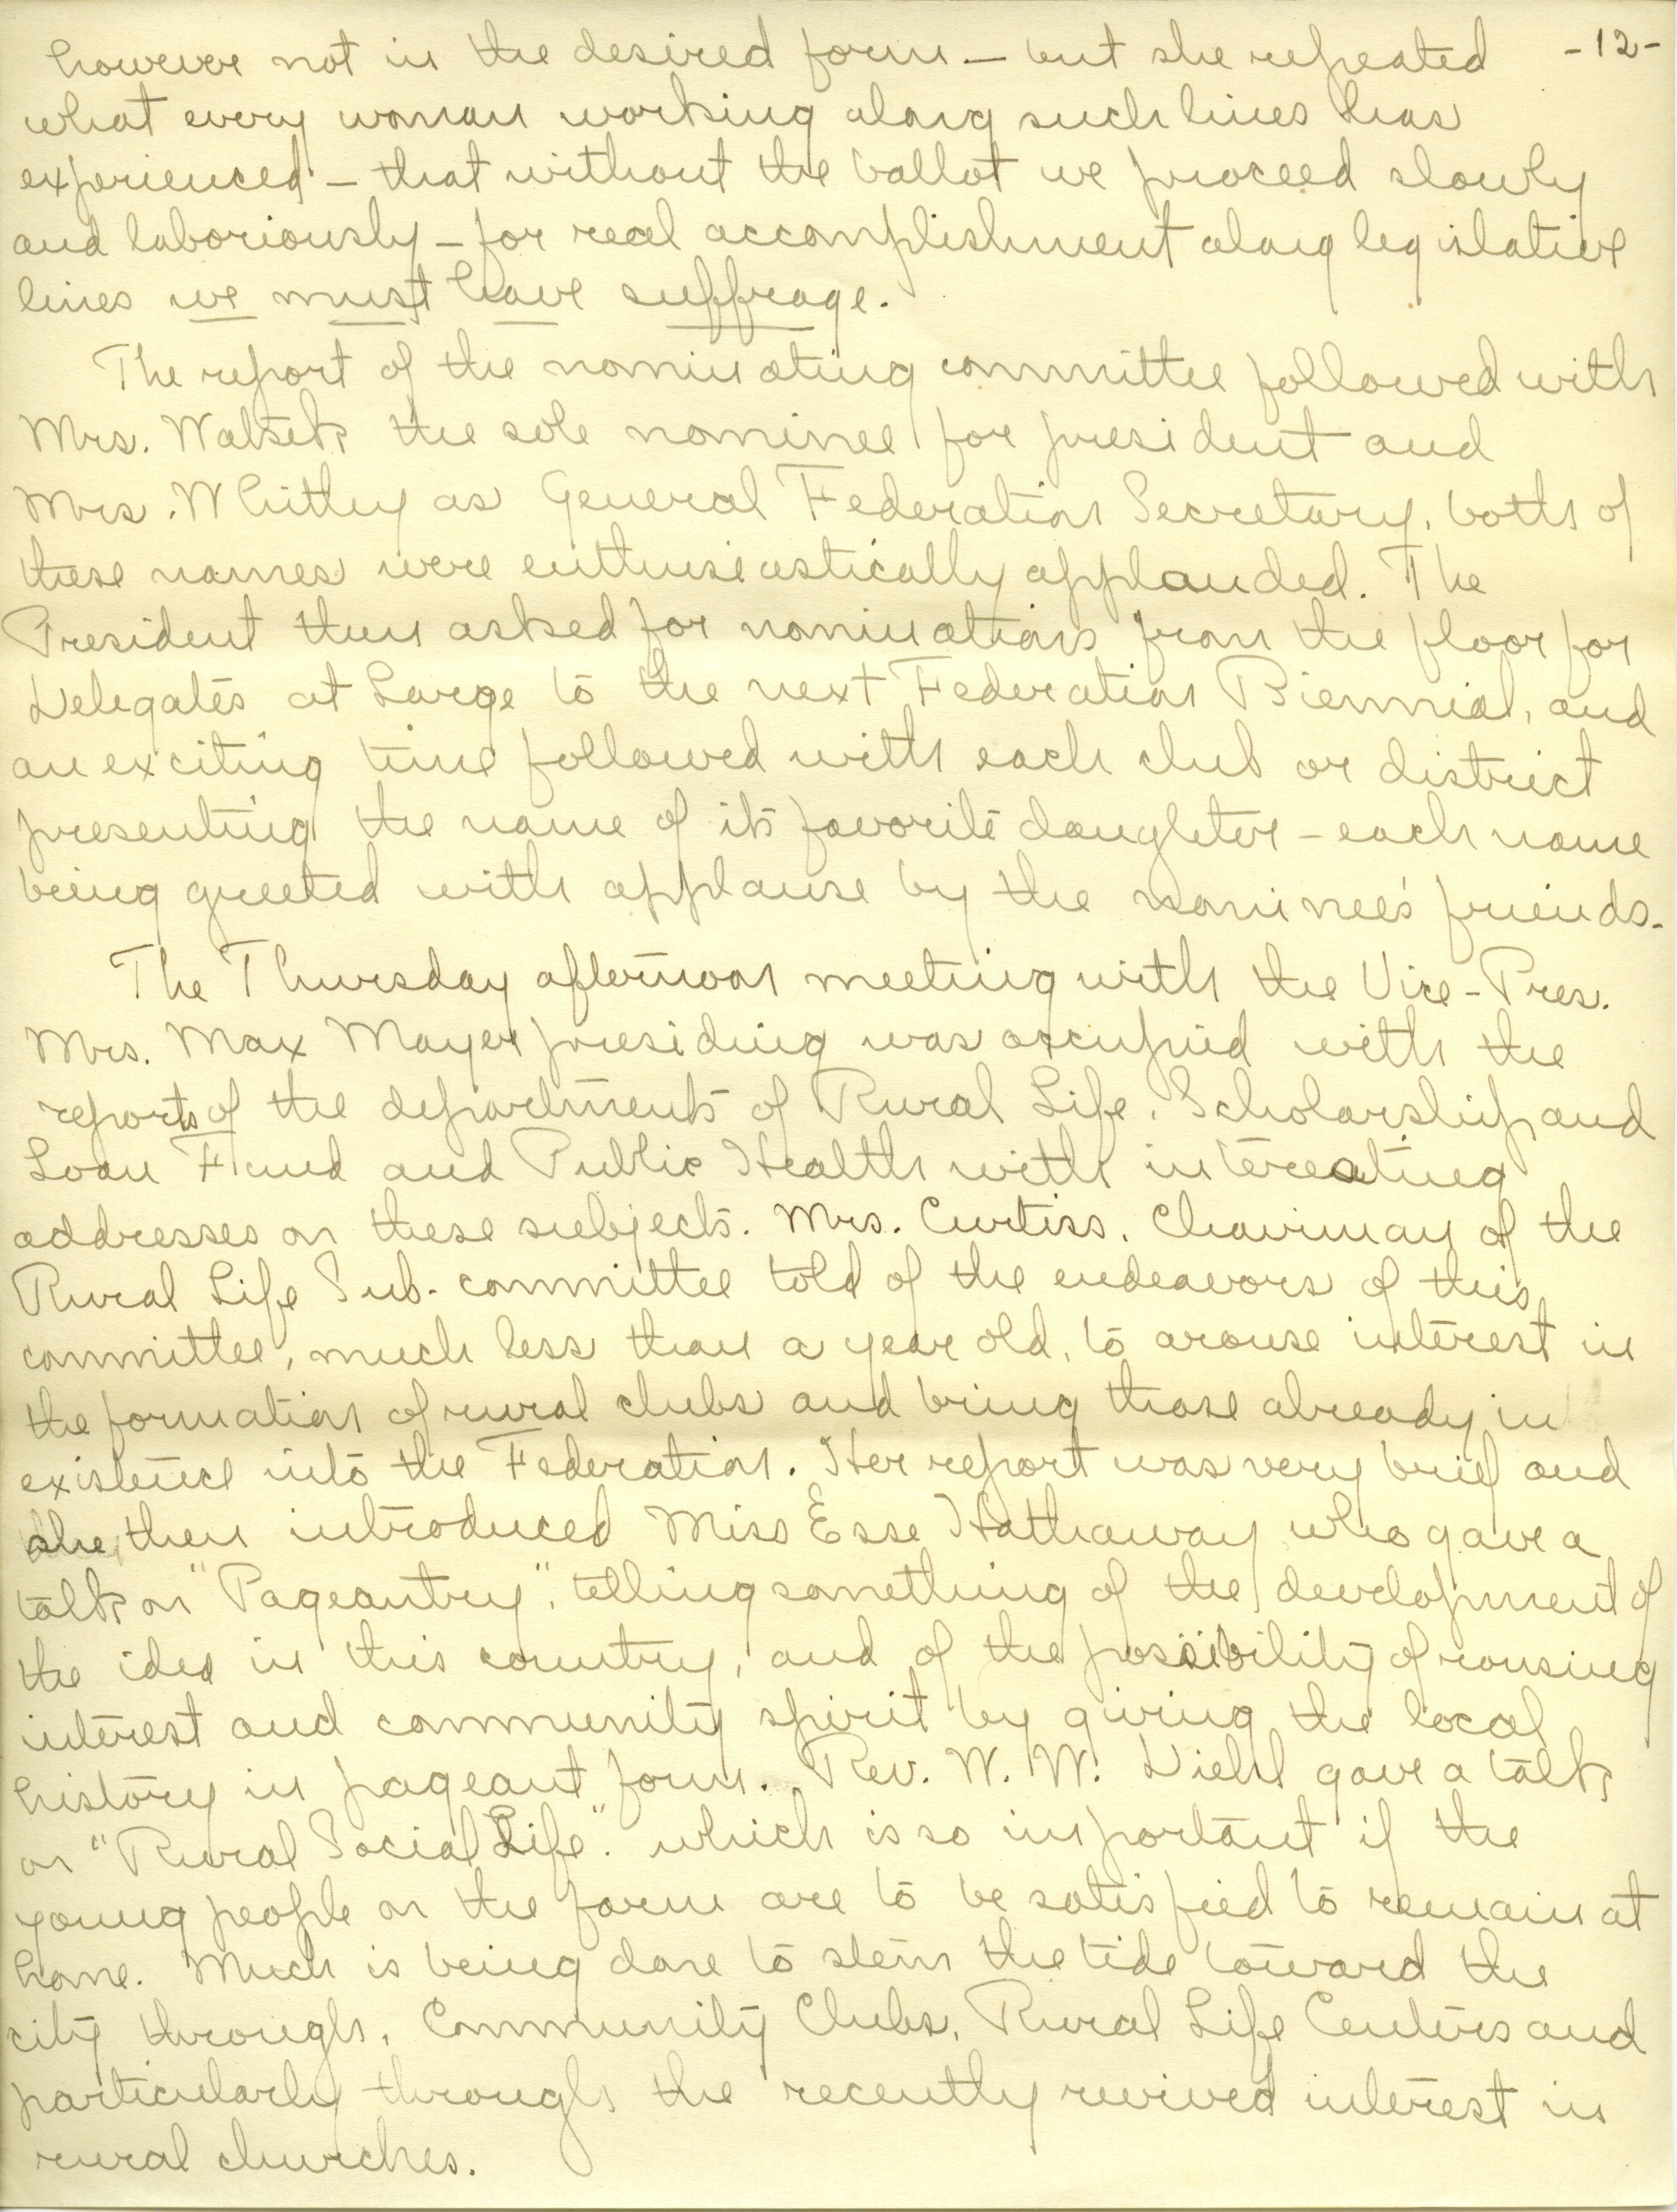 -12-
however not in the desired form — but she repeated
what every woman working along such lines has
experienced — that without the ballot we proceed slowly
and laboriously — for real accomplishment along legislative
lines we must have suffrage.
The report of the nominating committee followed with
Mrs. the sole nominee for president and
Mrs. Whitley as General Federation Secretary, both of
these names were enthusiastically applauded. The
President then asked for nominations from the floor for
Delegates at Large to the next Federation Biennial, and
an exciting time followed with each club or district
presenting the name of its favorite daughter — each name
being greeted with applause by the nominee's friends.
The Thursday afternoon meeting with the Vice-Pres.
Mrs. Max Mayer presiding was occupied with the
reports of the departments of Rural Life, Scholarship and
Loan Fund and Public Health with interesting
addresses on these subjects. Mrs. Curtiss, Chairman of the
Rural Life Sub-committee told of the endeavors of this
committee, much less than a year old, to arouse interest in
the formation of rural clubs and bring those already in
existence into the Federation. Her report was very brief and
she then introduced Miss Esse Hathaway who gave a
talk on "Pageantry", telling something of the development of
the idea in this country, and of the possibility of rousing
interest and community spirit by giving the local
history in pageant form. Rev. W. W. Diehl gave a talk
on "Rural Social Life." which is so important if the
young people on the farm are to be satisfied to remain at
home. Much is being done to stem the tide toward the
city through, Community Clubs, Rural Life Centers and
particularly through the recently revived interest in
rural churches.